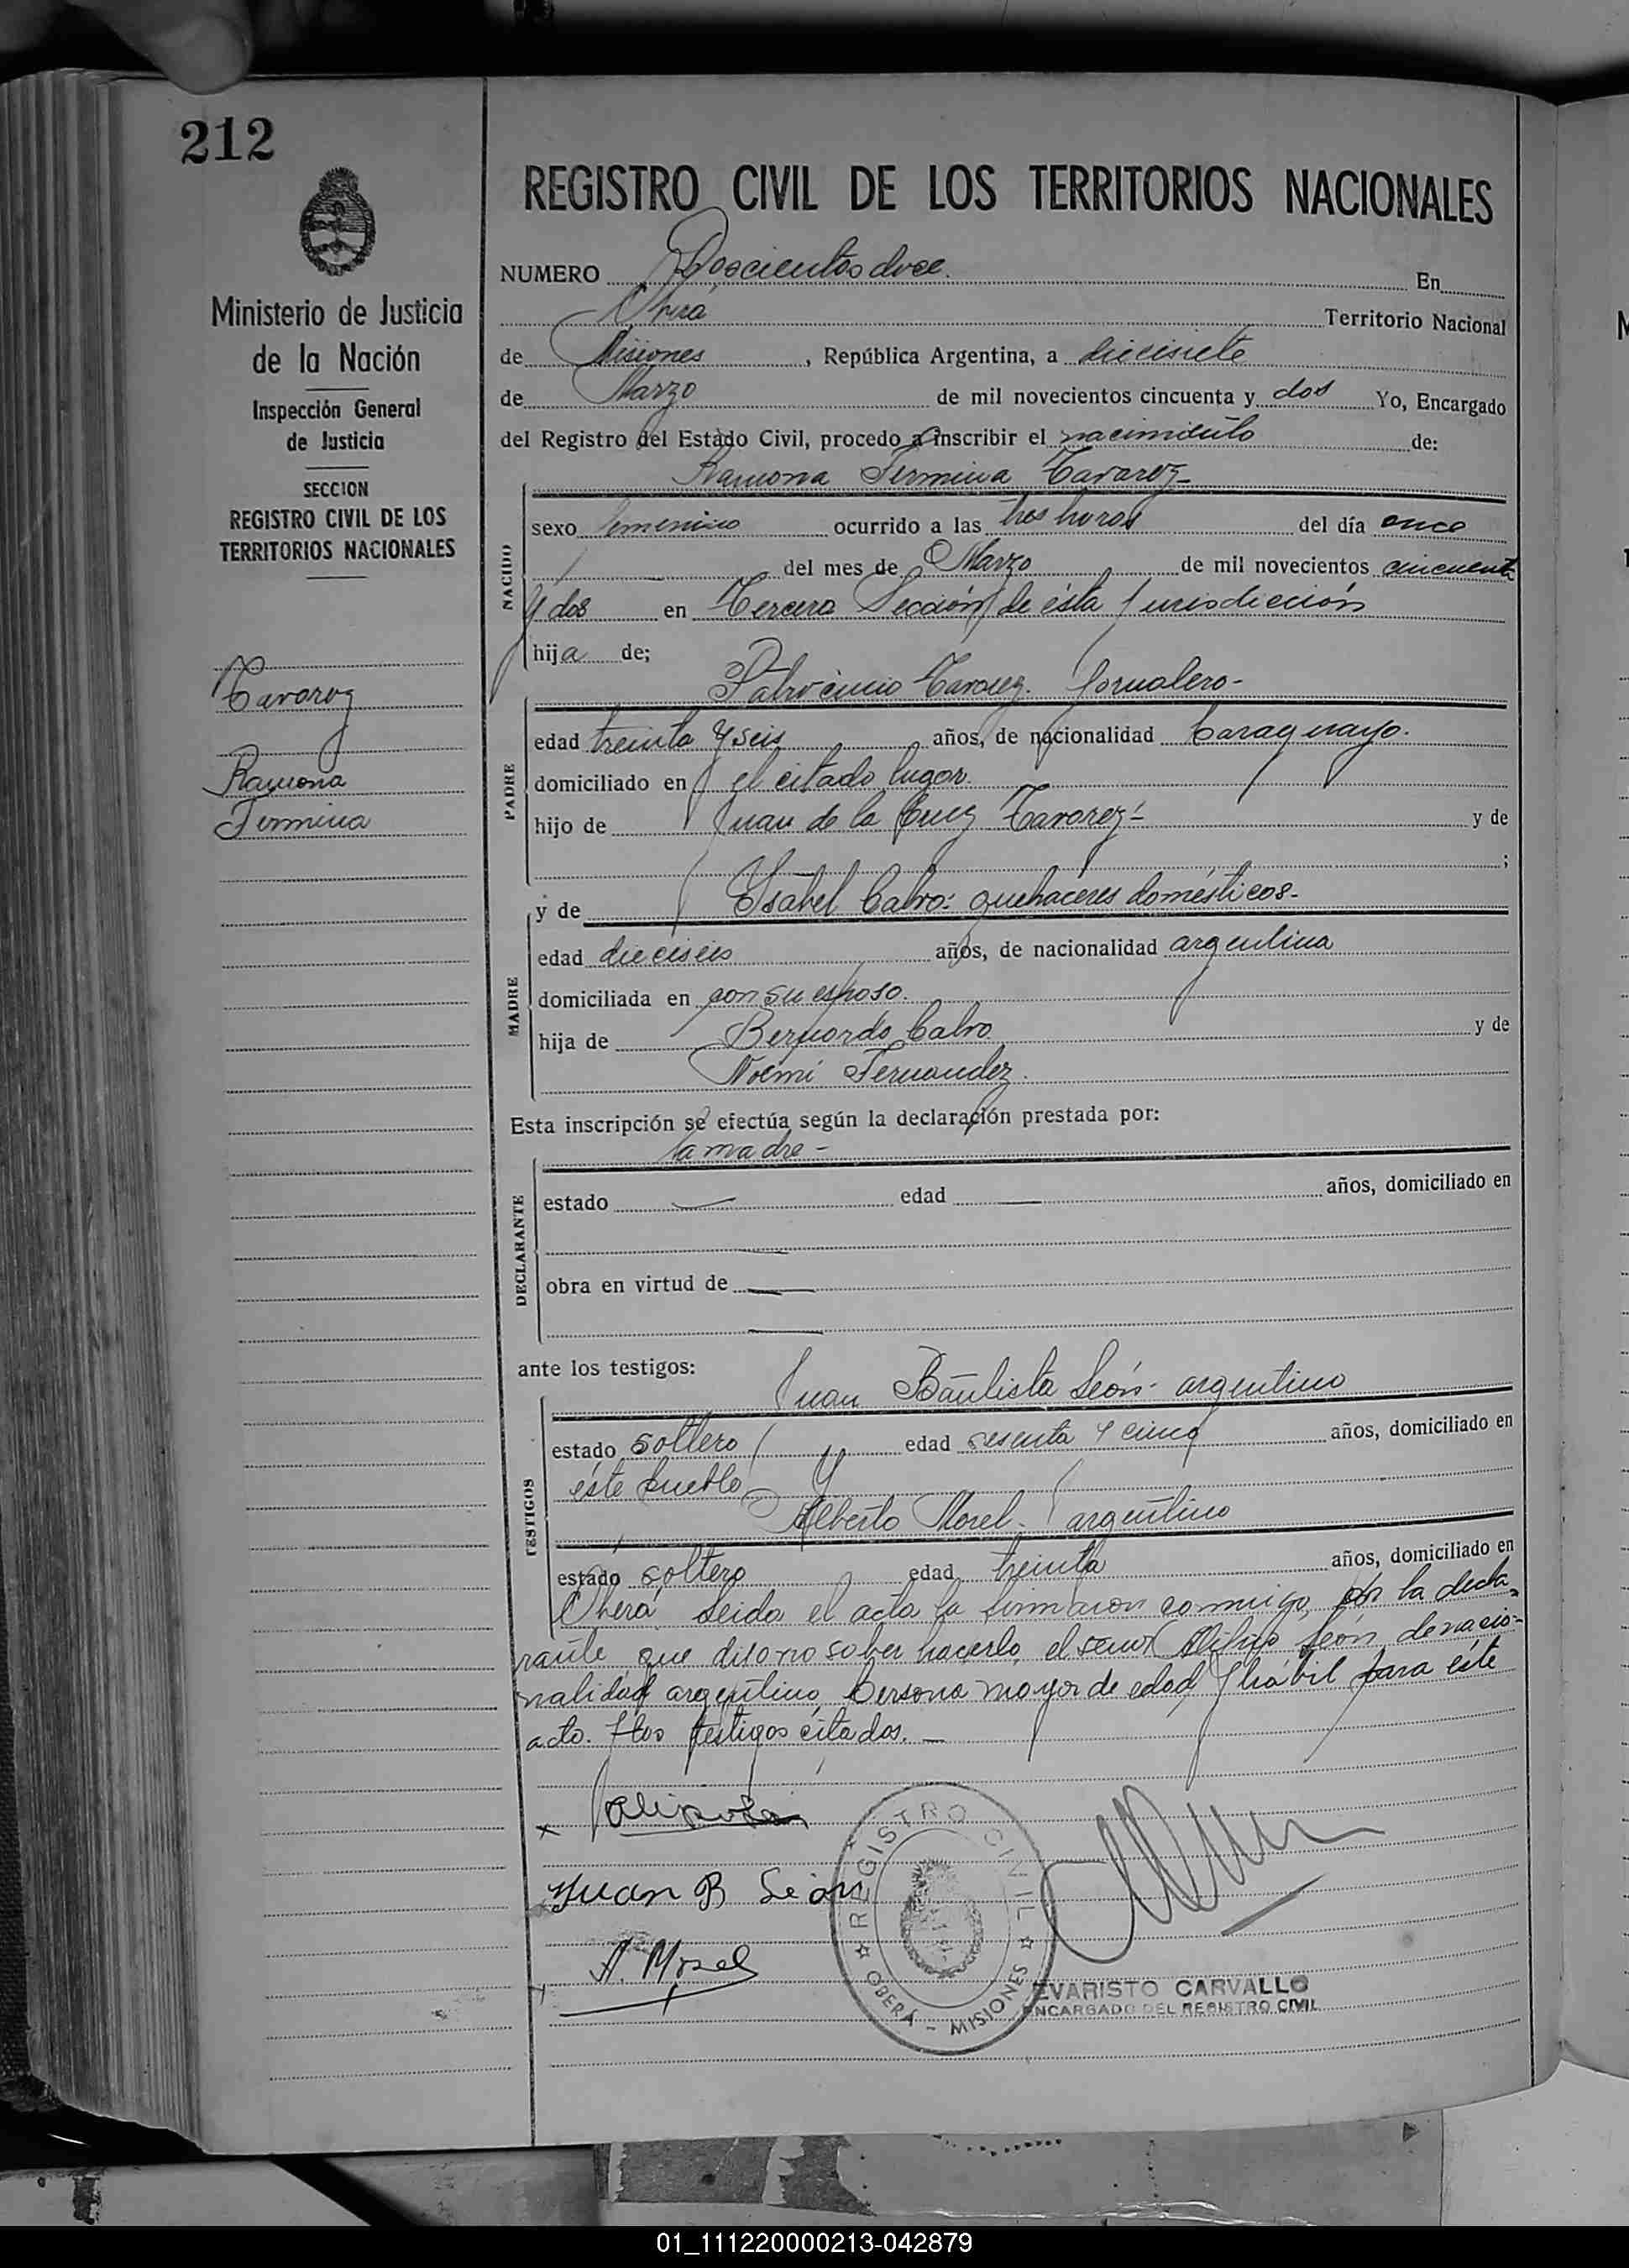 212
REGISTRO CIVIL DE LOS TERRITORIOS NACIONALES
Ministerio de Justicia
de la Nación
Inspección General
de Justicia
SECCION
REGISTRO CIVIL DE LOS
TERRITORIOS NACIONALES
Tavarez
Ramona
Fermina
NUMERO Doscientos doce. En
Oberá Territorio Nacional
de Misiones, República Argentina, a diecisiete
de Marzo de mil novecientos cincuenta y dos Yo, Encargado
del Registro del Estado Civil, procedo a inscribir el nacimiento de:
Ramona Fermina Tavarez-
NACIDO
sexo femenino ocurrido a las tres horas del día once
del mes de Marzo de mil novecientos cincuenta
y dos en Tercera Sección de ésta jurisdicción
hija de;
Patrocinio Tavarez. Jornalero-
PADRE
edad treinta y seis años, de nacionalidad Paraguayo.
domiciliado en el citado lugar.
hijo de Juan de la Cruz Tavarez- y de
;
y de Ysabel Calvo: quehaceres domésticos-
MADRE
edad dieciséis años, de nacionalidad argentina
domiciliada en con su esposo.
hija de Bernardo Calvo y de
Noemí Fernandez.
Esta inscripción se efectúa según la declaración prestada por:
la madre-
DECLARANTE
estado — edad — años, domiciliado en
—
obra en virtud de —
—
ante los testigos:
Juan Bautista León- argentino
TESTIGOS
estado soltero edad sesenta y cinco años, domiciliado en
éste pueblo y
Alberto Morel- argentino
estado soltero edad treinta años, domiciliado en
Oberá Leida el acta la firmaron conmigo, por la decla-
rante que dijo no saber hacerlo, el señor León, de nacio-
nalidad argentino, persona mayor de edad y hábil para éste
acto. y los testigos citados. —
Juan B León
A. Morel
REGISTRO CIVIL
OBERÁ - MISIONES
EVARISTO CARVALLO
ENCARGADO DEL REGISTRO CIVIL
01_111220000213-042879